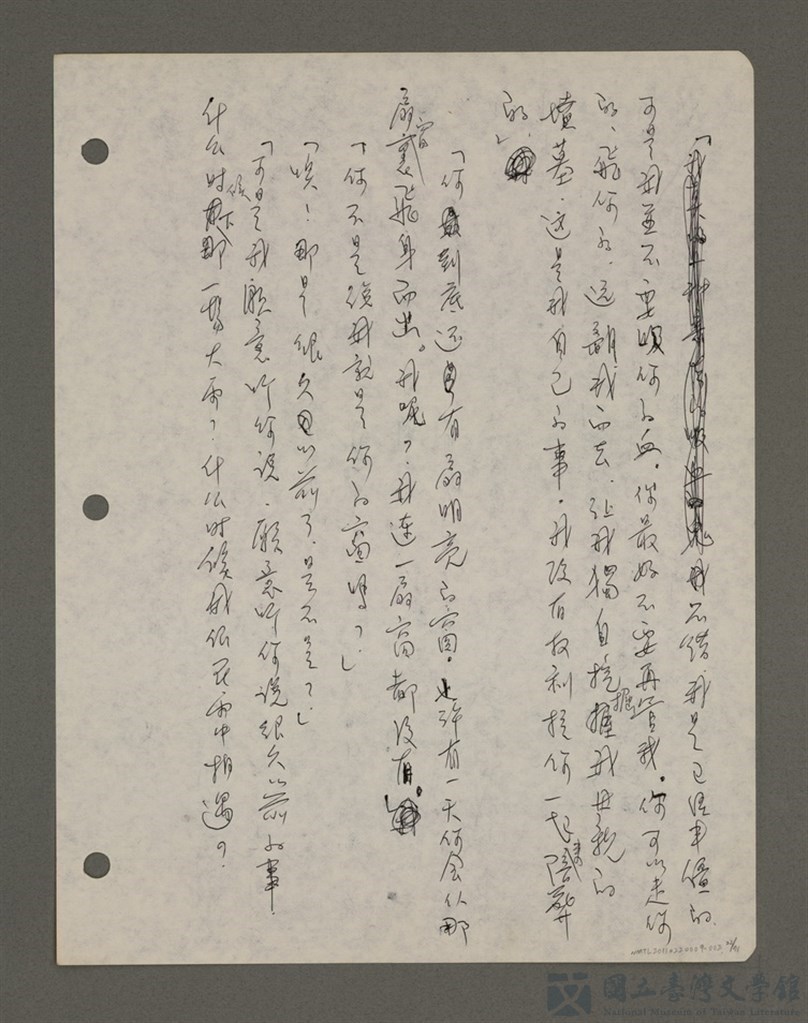 「我不錯，我是已經申僵的，
可是我並不要吸你的血。你最好不要再管我。你可以走你
的、飛你的，远翻我而去，让我獨自挖掘我母親的
墳墓，这是我自己的事。我沒有权利拉你一起陪葬
的」
「你到底还有扇明亮的窗。也許有一天你会从那
扇窗裏飛身而出。我呢？我連一扇窗都沒有。」
「你不是說我就是你的窗嗎？」
「唉！那是很久以前了，是不是？」
「可是我願意听你說，願意听你說很久以前的事。
什么时候下那一場大雨？什么时候我們在雨中相遇？
國立臺灣文學館
National Museum of Taiwan Literature